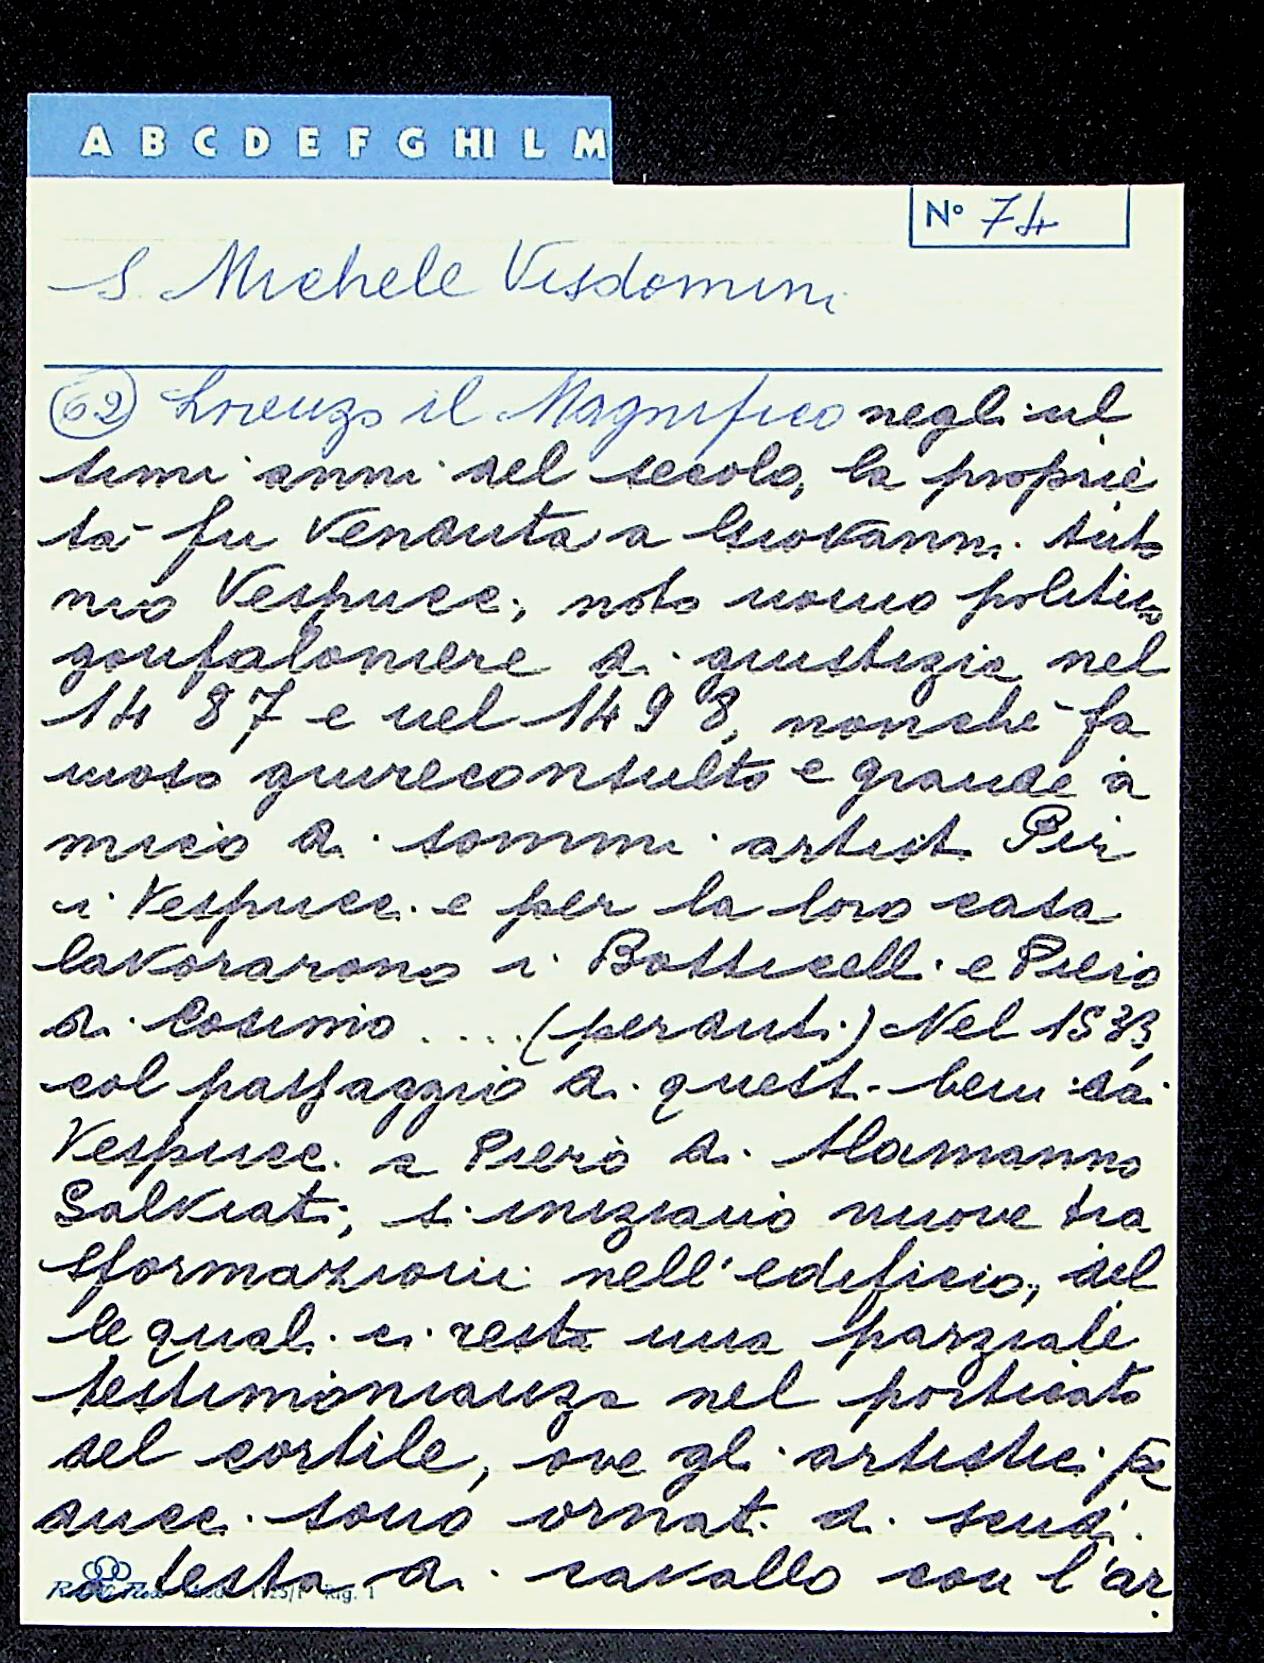 A B C D E F G HI L M
N° 74
S. Michele Visdomini
62 Lorenzo il Magnifico negli ul
timi anni del secolo, la proprie
tà fu venduta a Giovanni Anto
nio Vespucci, noto uomo politico
gonfaloniere di giustizia nel
1487 e nel 1498, nonchè fa
moso giureconsulto e grande a
mico di sommi artisti. Per
i Vespucci e per la loro casa
lavorarono i Botticelli e Piero
di Cosimo .... (perduti) Nel 1533,
col passaggio di questi beni dai
Vespucci a Piero di Alamanno
Salviati, si iniziano nuove tra
sformazioni nell'edificio, del
le quali ci resta una parziale
testimonianza nel porticato
del cortile, ove gli artistici pe
ducci sono ornati di scudi
a testa di cavallo con l'ar
1125/1 Rig. 1